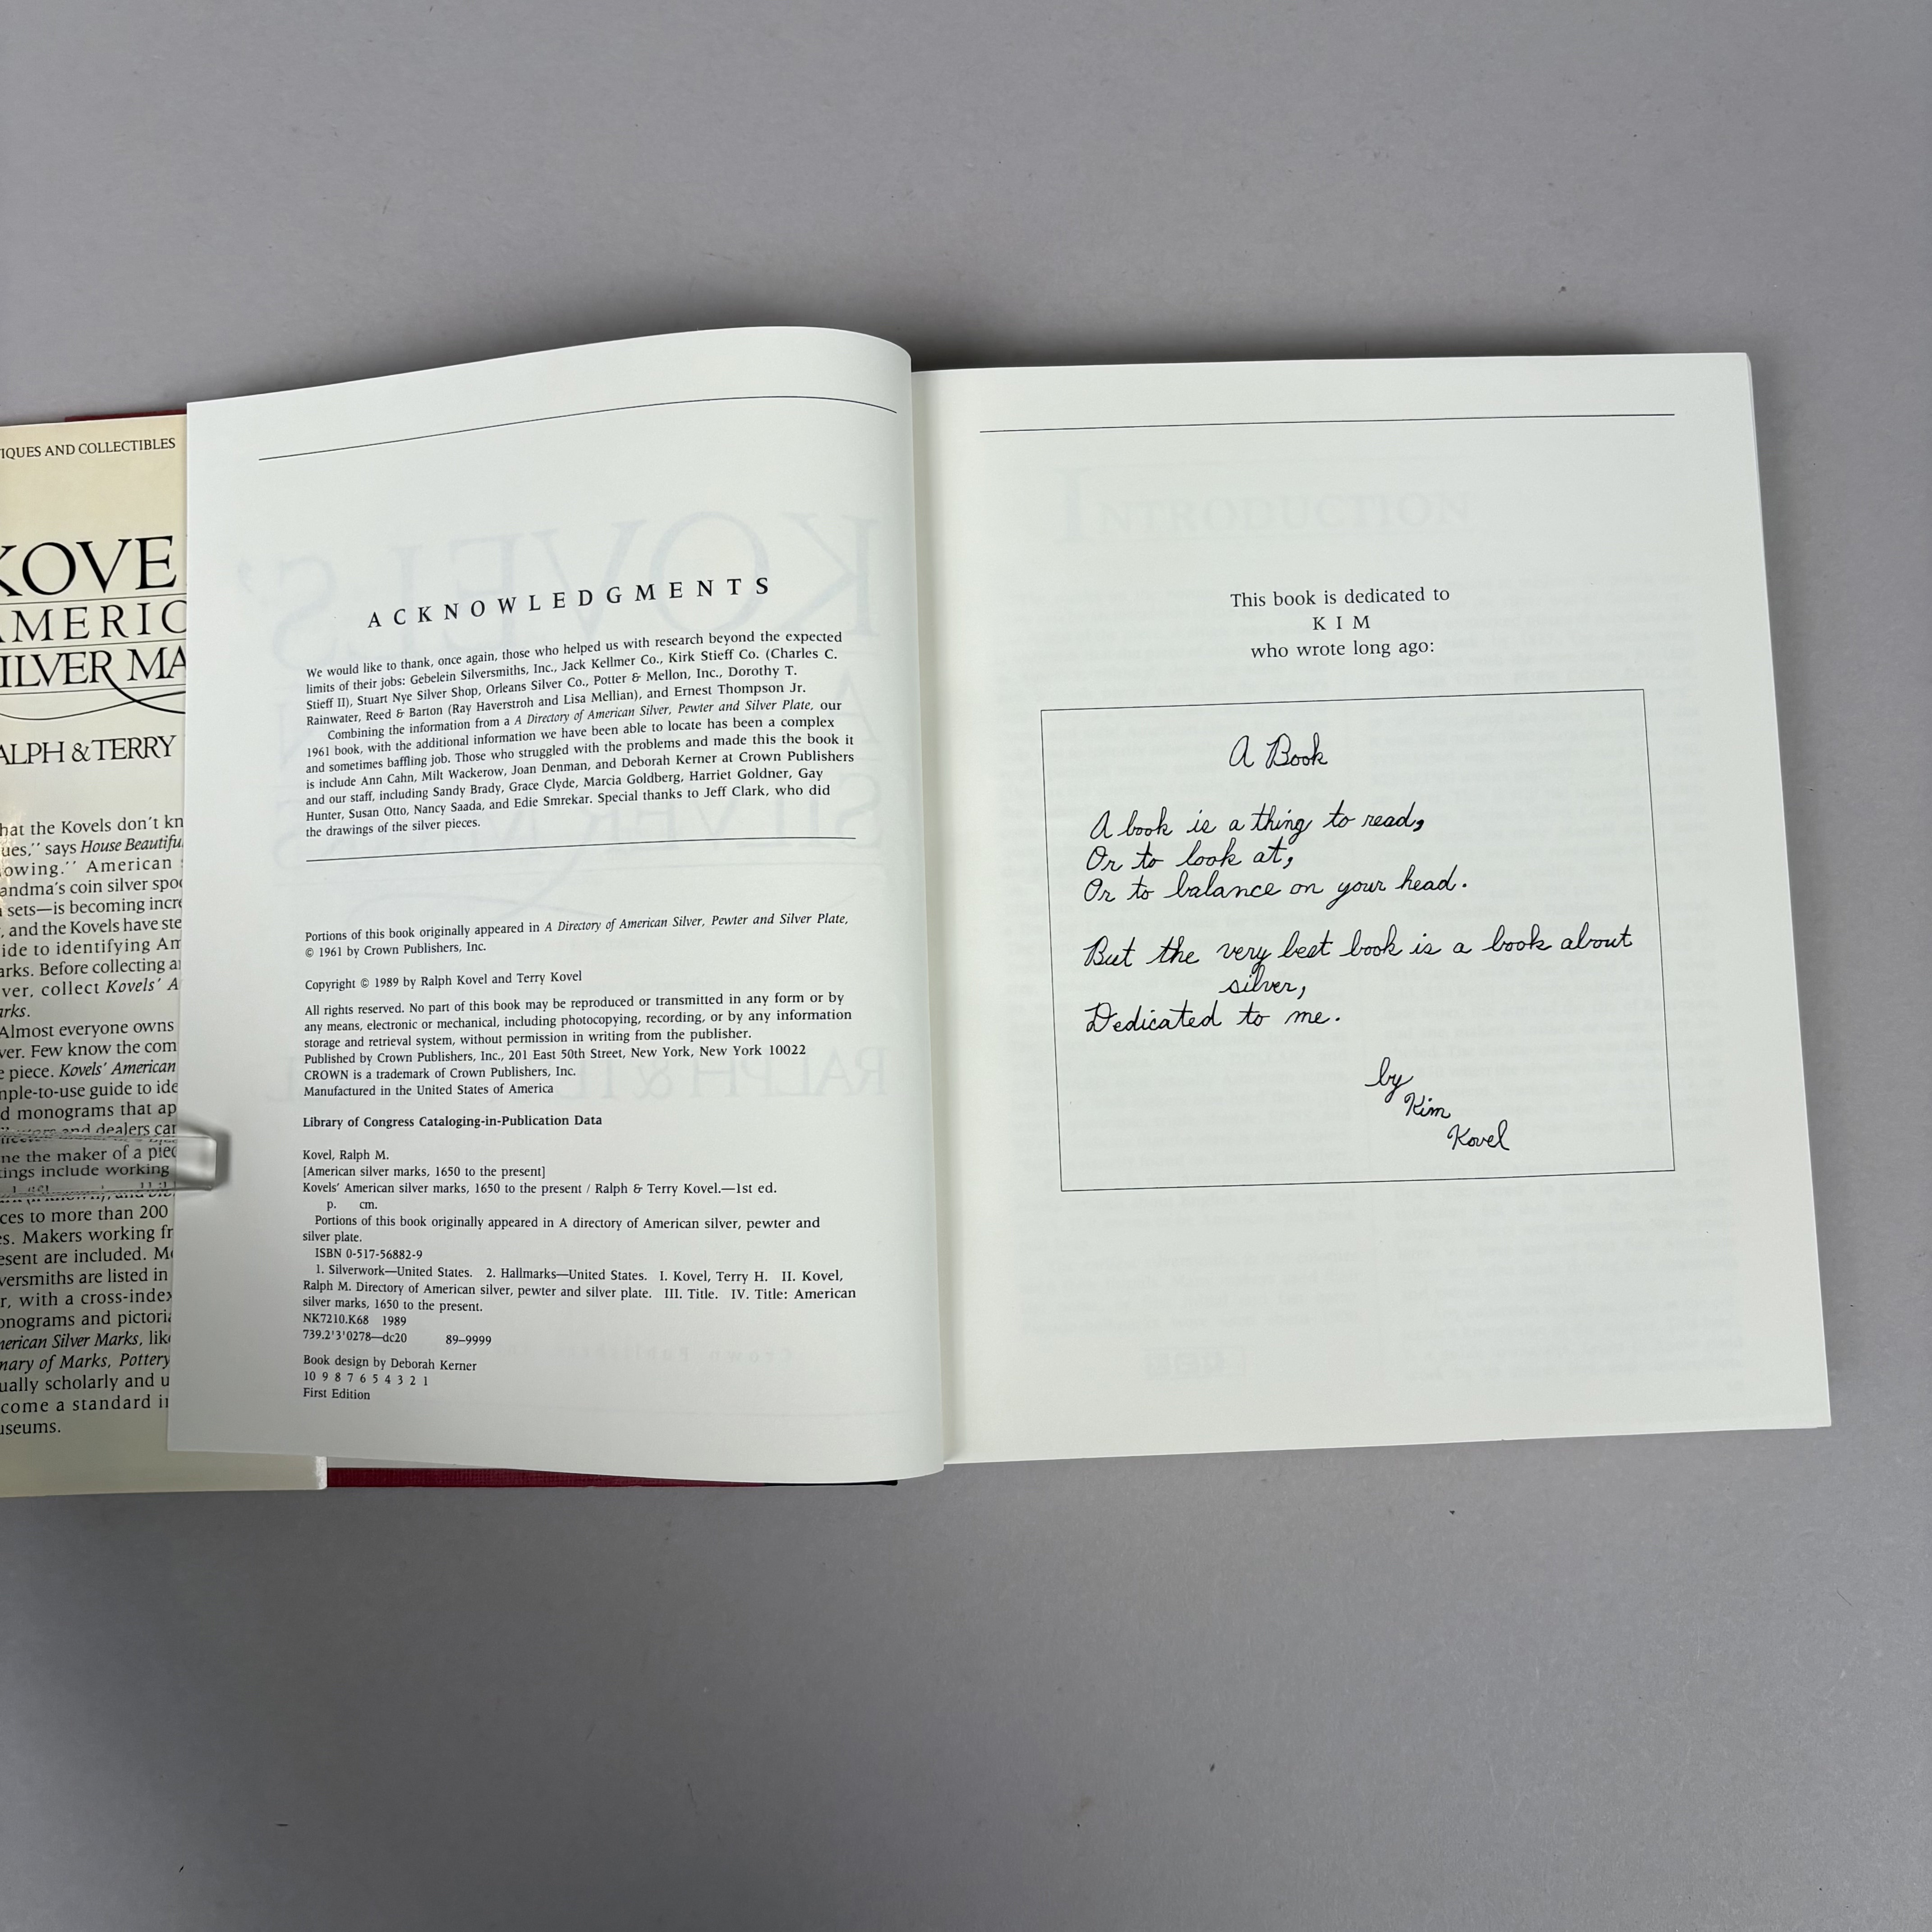 IQUES AND COLLECTIBLES
KOVE
AMERIC
ILVER MA
ALPH & TERRY
hat the Kovels don't kn
ues," says House Beautifu
owing." American
andma's coin silver spo
sets—is becoming incre
, and the Kovels have ste
ide to identifying Am
arks. Before collecting a
ver, collect Kovels' A
arks.
Almost everyone owns
ver. Few know the com
e piece. Kovels' American
mple-to-use guide to ide
d monograms that ap
and dealers car
ne the maker of a piec
tings include working
ces to more than 200
es. Makers working fr
esent are included. Mo
versmiths are listed in
r, with a cross-index
onograms and pictoria
merican Silver Marks, lik
nary of Marks, Pottery
ually scholarly and u
come a standard in
useums.
ACKNOWLEDGMENTS
We would like to thank, once again, those who helped us with research beyond the expected
limits of their jobs: Gebelein Silversmiths, Inc., Jack Kellmer Co., Kirk Stieff Co. (Charles C.
Stieff II), Stuart Nye Silver Shop, Orleans Silver Co., Potter & Mellon, Inc., Dorothy T.
Rainwater, Reed & Barton (Ray Haverstroh and Lisa Mellian), and Ernest Thompson Jr.
Combining the information from a A Directory of American Silver, Pewter and Silver Plate, our
1961 book, with the additional information we have been able to locate has been a complex
and sometimes baffling job. Those who struggled with the problems and made this the book it
is include Ann Cahn, Milt Wackerow, Joan Denman, and Deborah Kerner at Crown Publishers
and our staff, including Sandy Brady, Grace Clyde, Marcia Goldberg, Harriet Goldner, Gay
Hunter, Susan Otto, Nancy Saada, and Edie Smrekar. Special thanks to Jeff Clark, who did
the drawings of the silver pieces.
Portions of this book originally appeared in A Directory of American Silver, Pewter and Silver Plate,
© 1961 by Crown Publishers, Inc.
Copyright © 1989 by Ralph Kovel and Terry Kovel
All rights reserved. No part of this book may be reproduced or transmitted in any form or by
any means, electronic or mechanical, including photocopying, recording, or by any information
storage and retrieval system, without permission in writing from the publisher.
Published by Crown Publishers, Inc., 201 East 50th Street, New York, New York 10022
CROWN is a trademark of Crown Publishers, Inc.
Manufactured in the United States of America
Library of Congress Cataloging-in-Publication Data
Kovel, Ralph M.
[American silver marks, 1650 to the present]
Kovels' American silver marks, 1650 to the present / Ralph & Terry Kovel.—1st ed.
p. cm.
Portions of this book originally appeared in A directory of American silver, pewter and
silver plate.
ISBN 0-517-56882-9
1. Silverwork—United States. 2. Hallmarks—United States. I. Kovel, Terry H. II. Kovel,
Ralph M. Directory of American silver, pewter and silver plate. III. Title. IV. Title: American
silver marks, 1650 to the present.
NK7210.K68 1989
739.2'3'0278—dc20 89-9999
Book design by Deborah Kerner
10 9 8 7 6 5 4 3 2 1
First Edition
This book is dedicated to
KIM
who wrote long ago:
A Book
A book is a thing to read,
Or to look at,
Or to balance on your head.
But the very best book is a book about
silver,
Dedicated to me.
by
Kim
Kovel